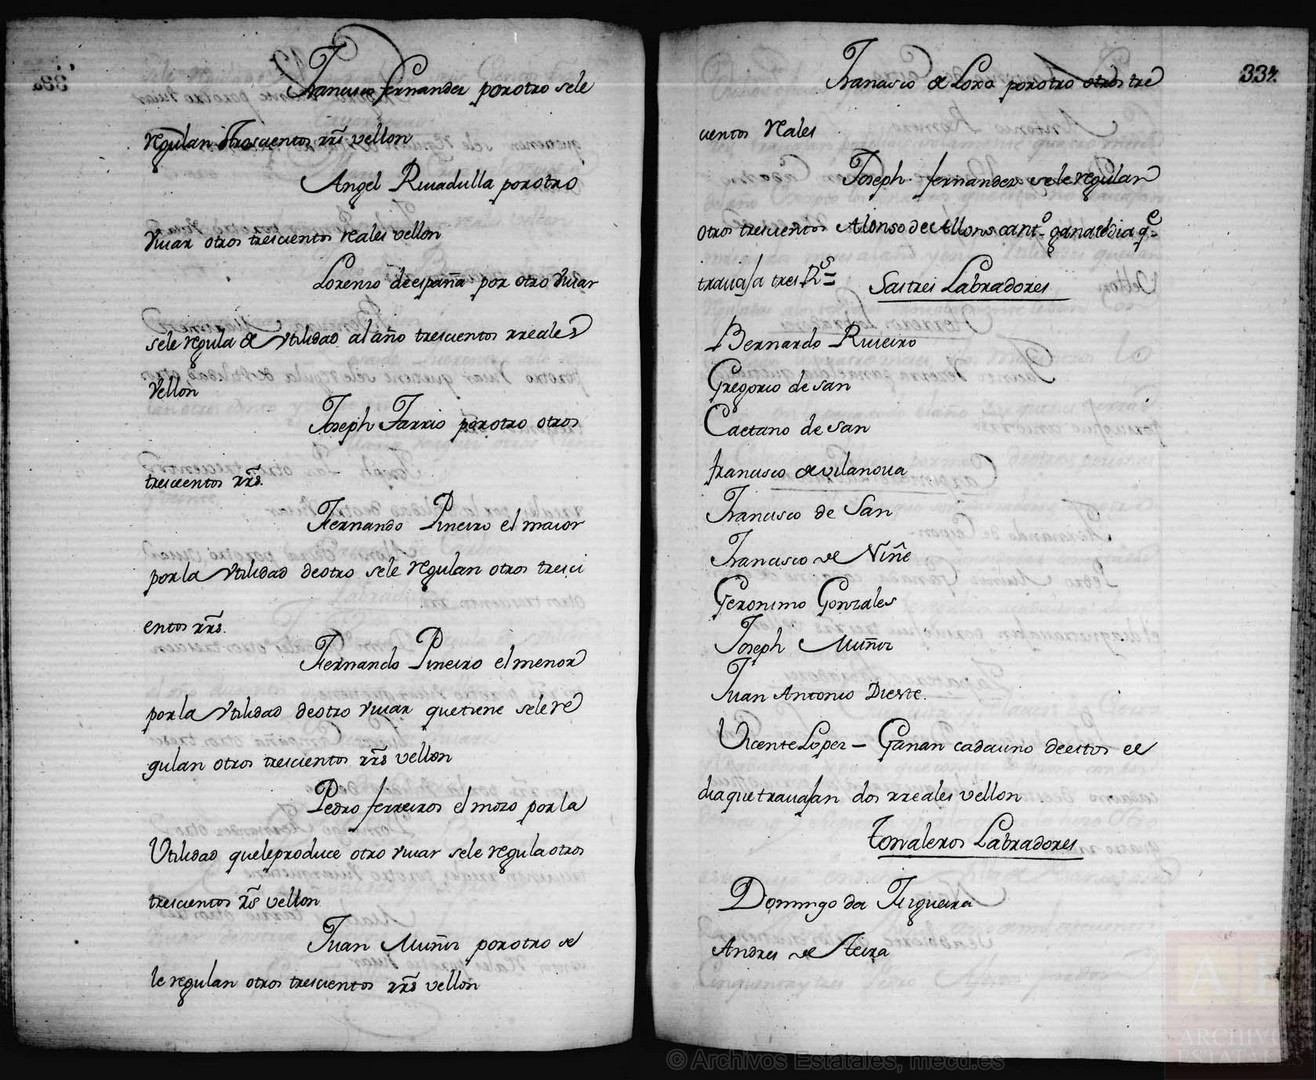 Francisco fernandez porotro sele
regulan otros trescientos rrs vellon
Angel Riuadulla porotro
viuar otros trescientos reales vellon
Lorenzo de españa por otro viuar
sele regula de Vtilidad al año trescientos rreales
vellon
Joseph Farrio porotro otros
trescientos rrs.
Fernando Pineiro el maior
por la Vtilidad deotro sele regulan otros tresci
entos rrs.
Fernando Pineiro elmenor
por la Vtilidad deotro viuar quetiene sele re
gulan otros trescientos rrs vellon
Pedro ferreiros el mozo por la
Utilidad queleproduce otro viuar sele regula otros
trescientos rs vellon
Juan Muñiz porotro se
le regulan otros trescientos rrs vellon
334
Francisco de Lora porotro otros tre
cientos reales
Joseph fernandez sele regulan
otros trescientos Alonso de Allons cant.o ganacadia q.e
trauaja tres Rs
Sastres Labradores
Bernardo Riueiro
Gregorio de san
Caetano de san
francisco de vilanova
Francisco de San
Francisco de Niñe
Geronimo Gonzales
Joseph Muñiz
Juan Antonio Dieste.
Vicente Lopez - Ganan cadauno deestos el
dia que trauajan dos rreales vellon
Tornaleros Labradores
Domingo da Figueira
Andres de Neira
© Archivos Estatales, mecd.es
AE
ARCHIVOS
ESTATALES